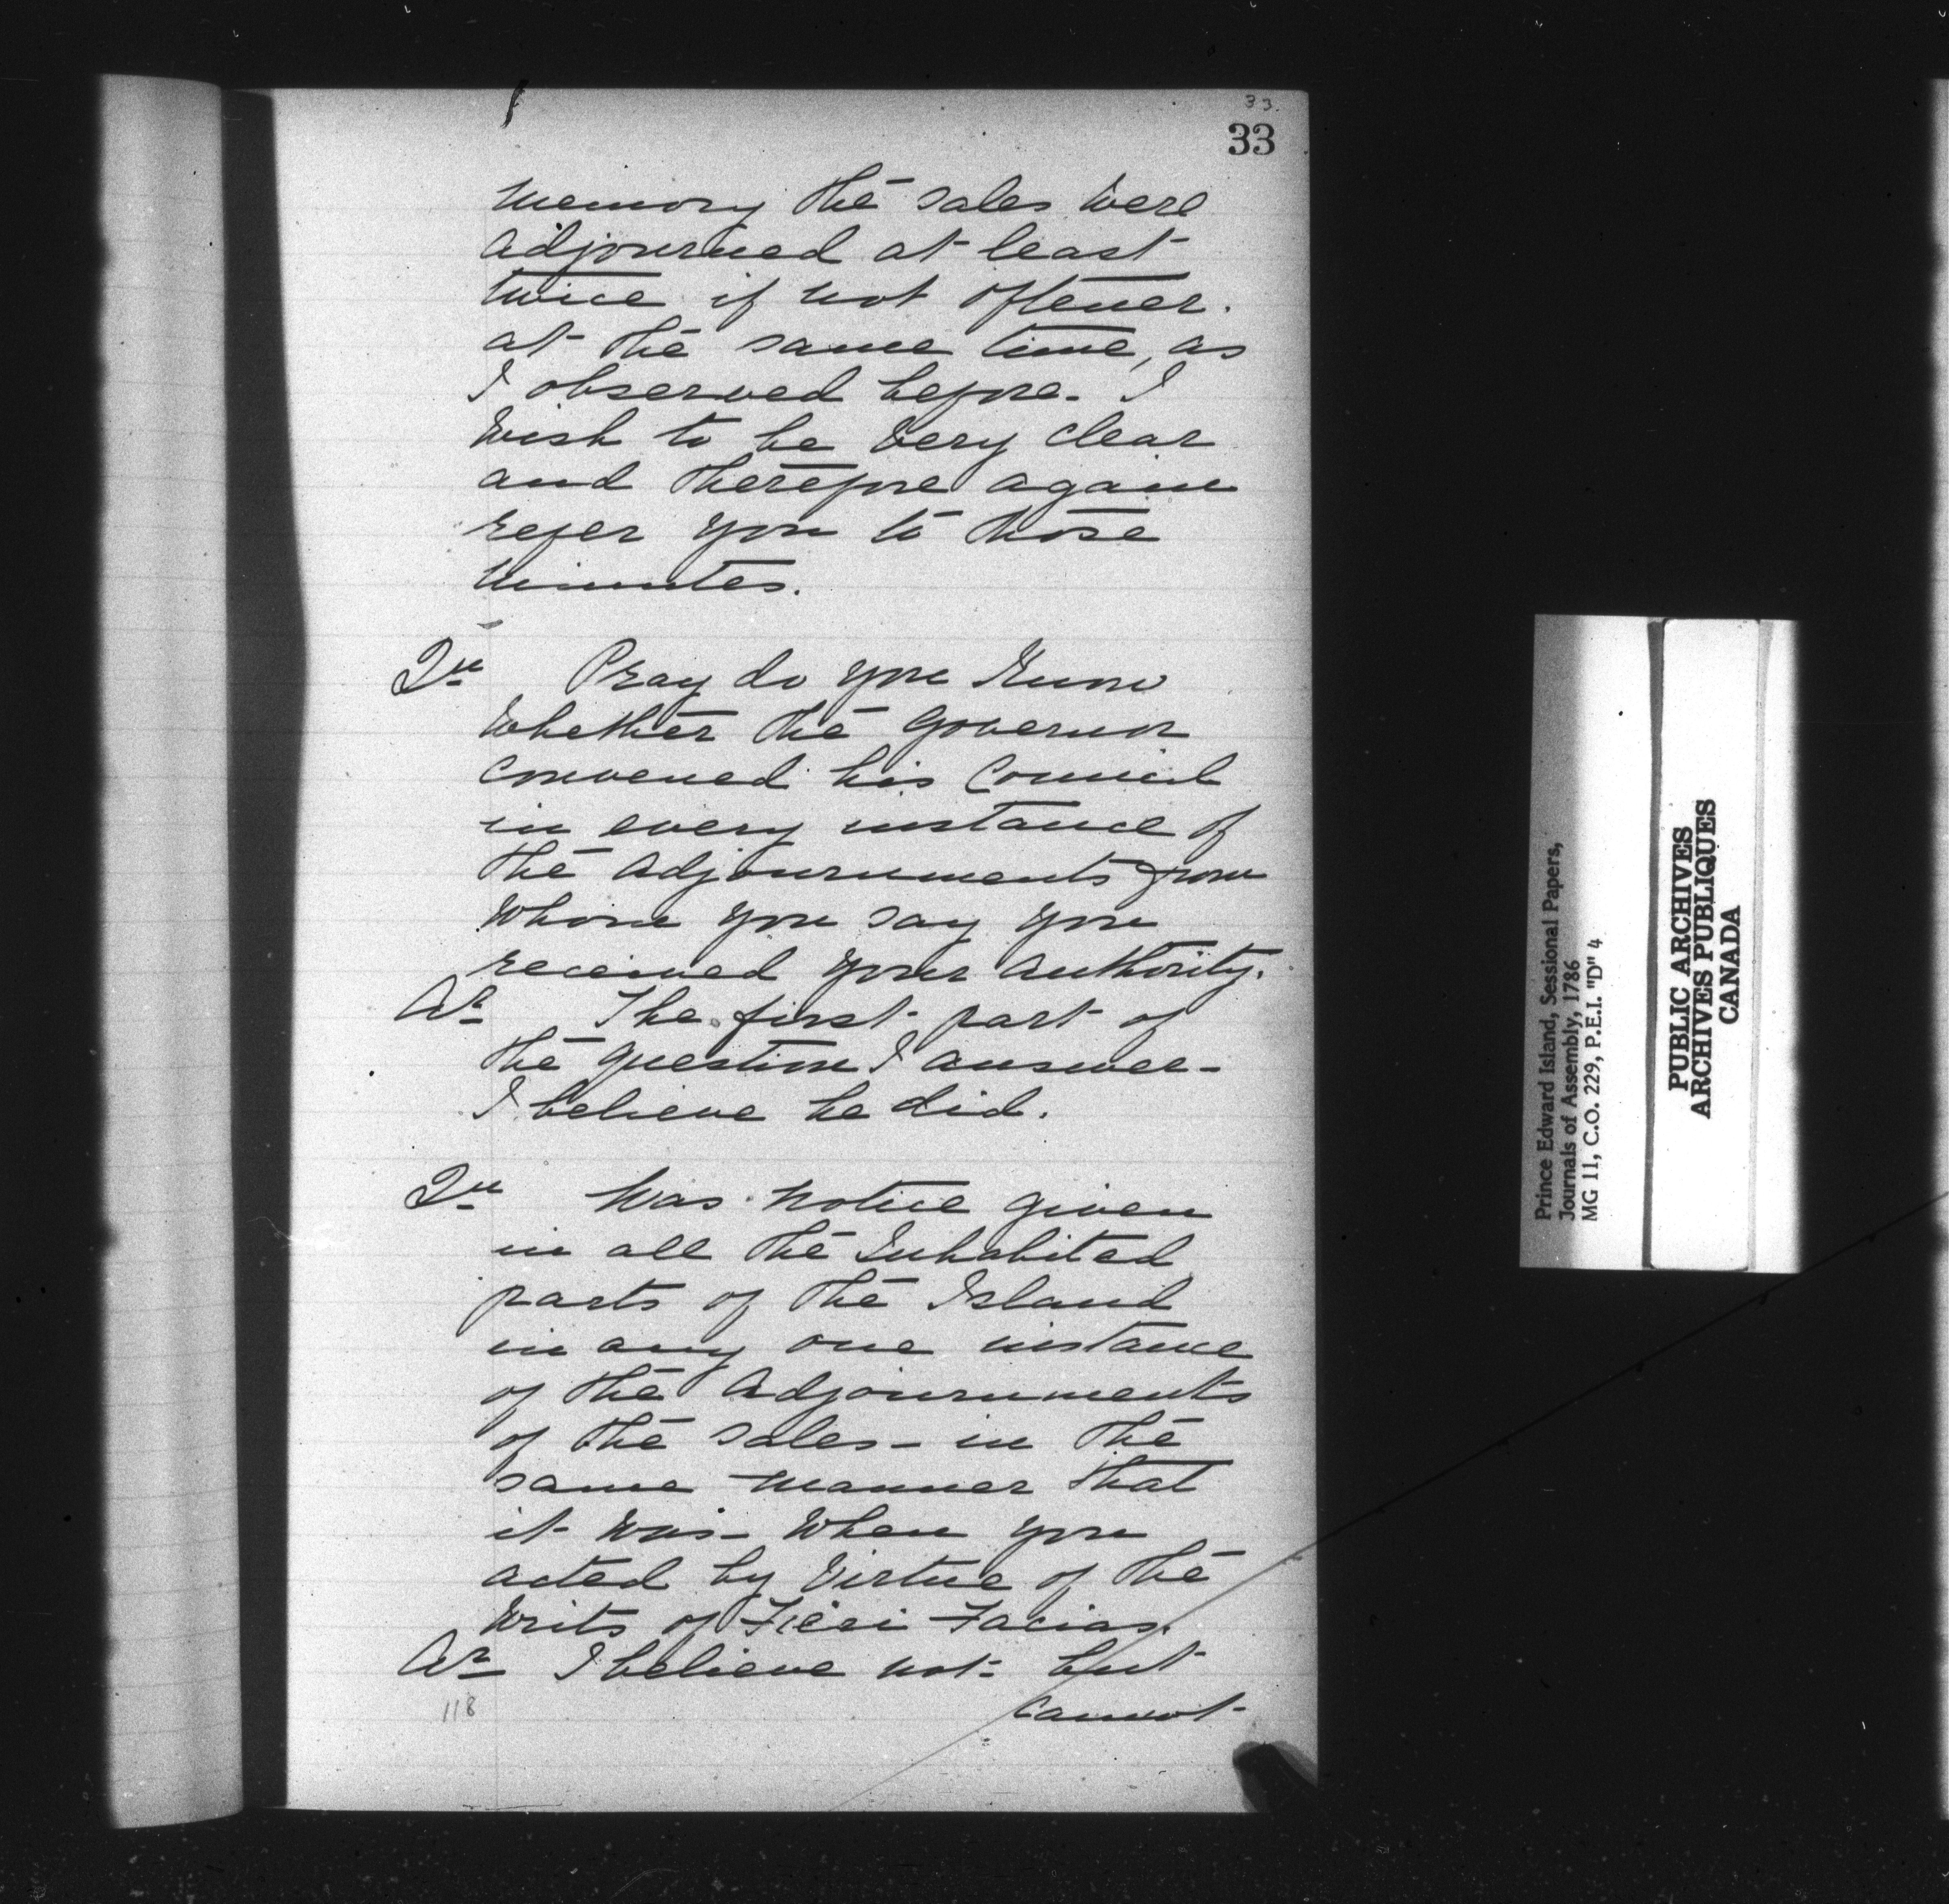 33.
33
memory the sales were
adjourned at least
twice if not oftener.
at the same time, as
I observed before. I
wish to be very clear
and therefore again
refer you to those
minutes.
Qu Pray do you know
whether the Governor
convened his Council
in every instance of
the adjournments from
whom you say you
received your authority.
Ar The first part of
the question I answer-
I believe he did.
Qu Was notice given
in all the Inhabited
parts of the Island
in any one instance
of the Adjournments
of the sales - in the
same manner that
it was - when you
acted by Virtue of the
writs of Fieri Facias.
Ar I believe not - but
cannot-
118
Prince Edward Island, Sessional Papers,
Journals of Assembly, 1786
MG 11, C.O. 229, P.E.I. "D" 4
PUBLIC ARCHIVES
ARCHIVES PUBLIQUES
CANADA